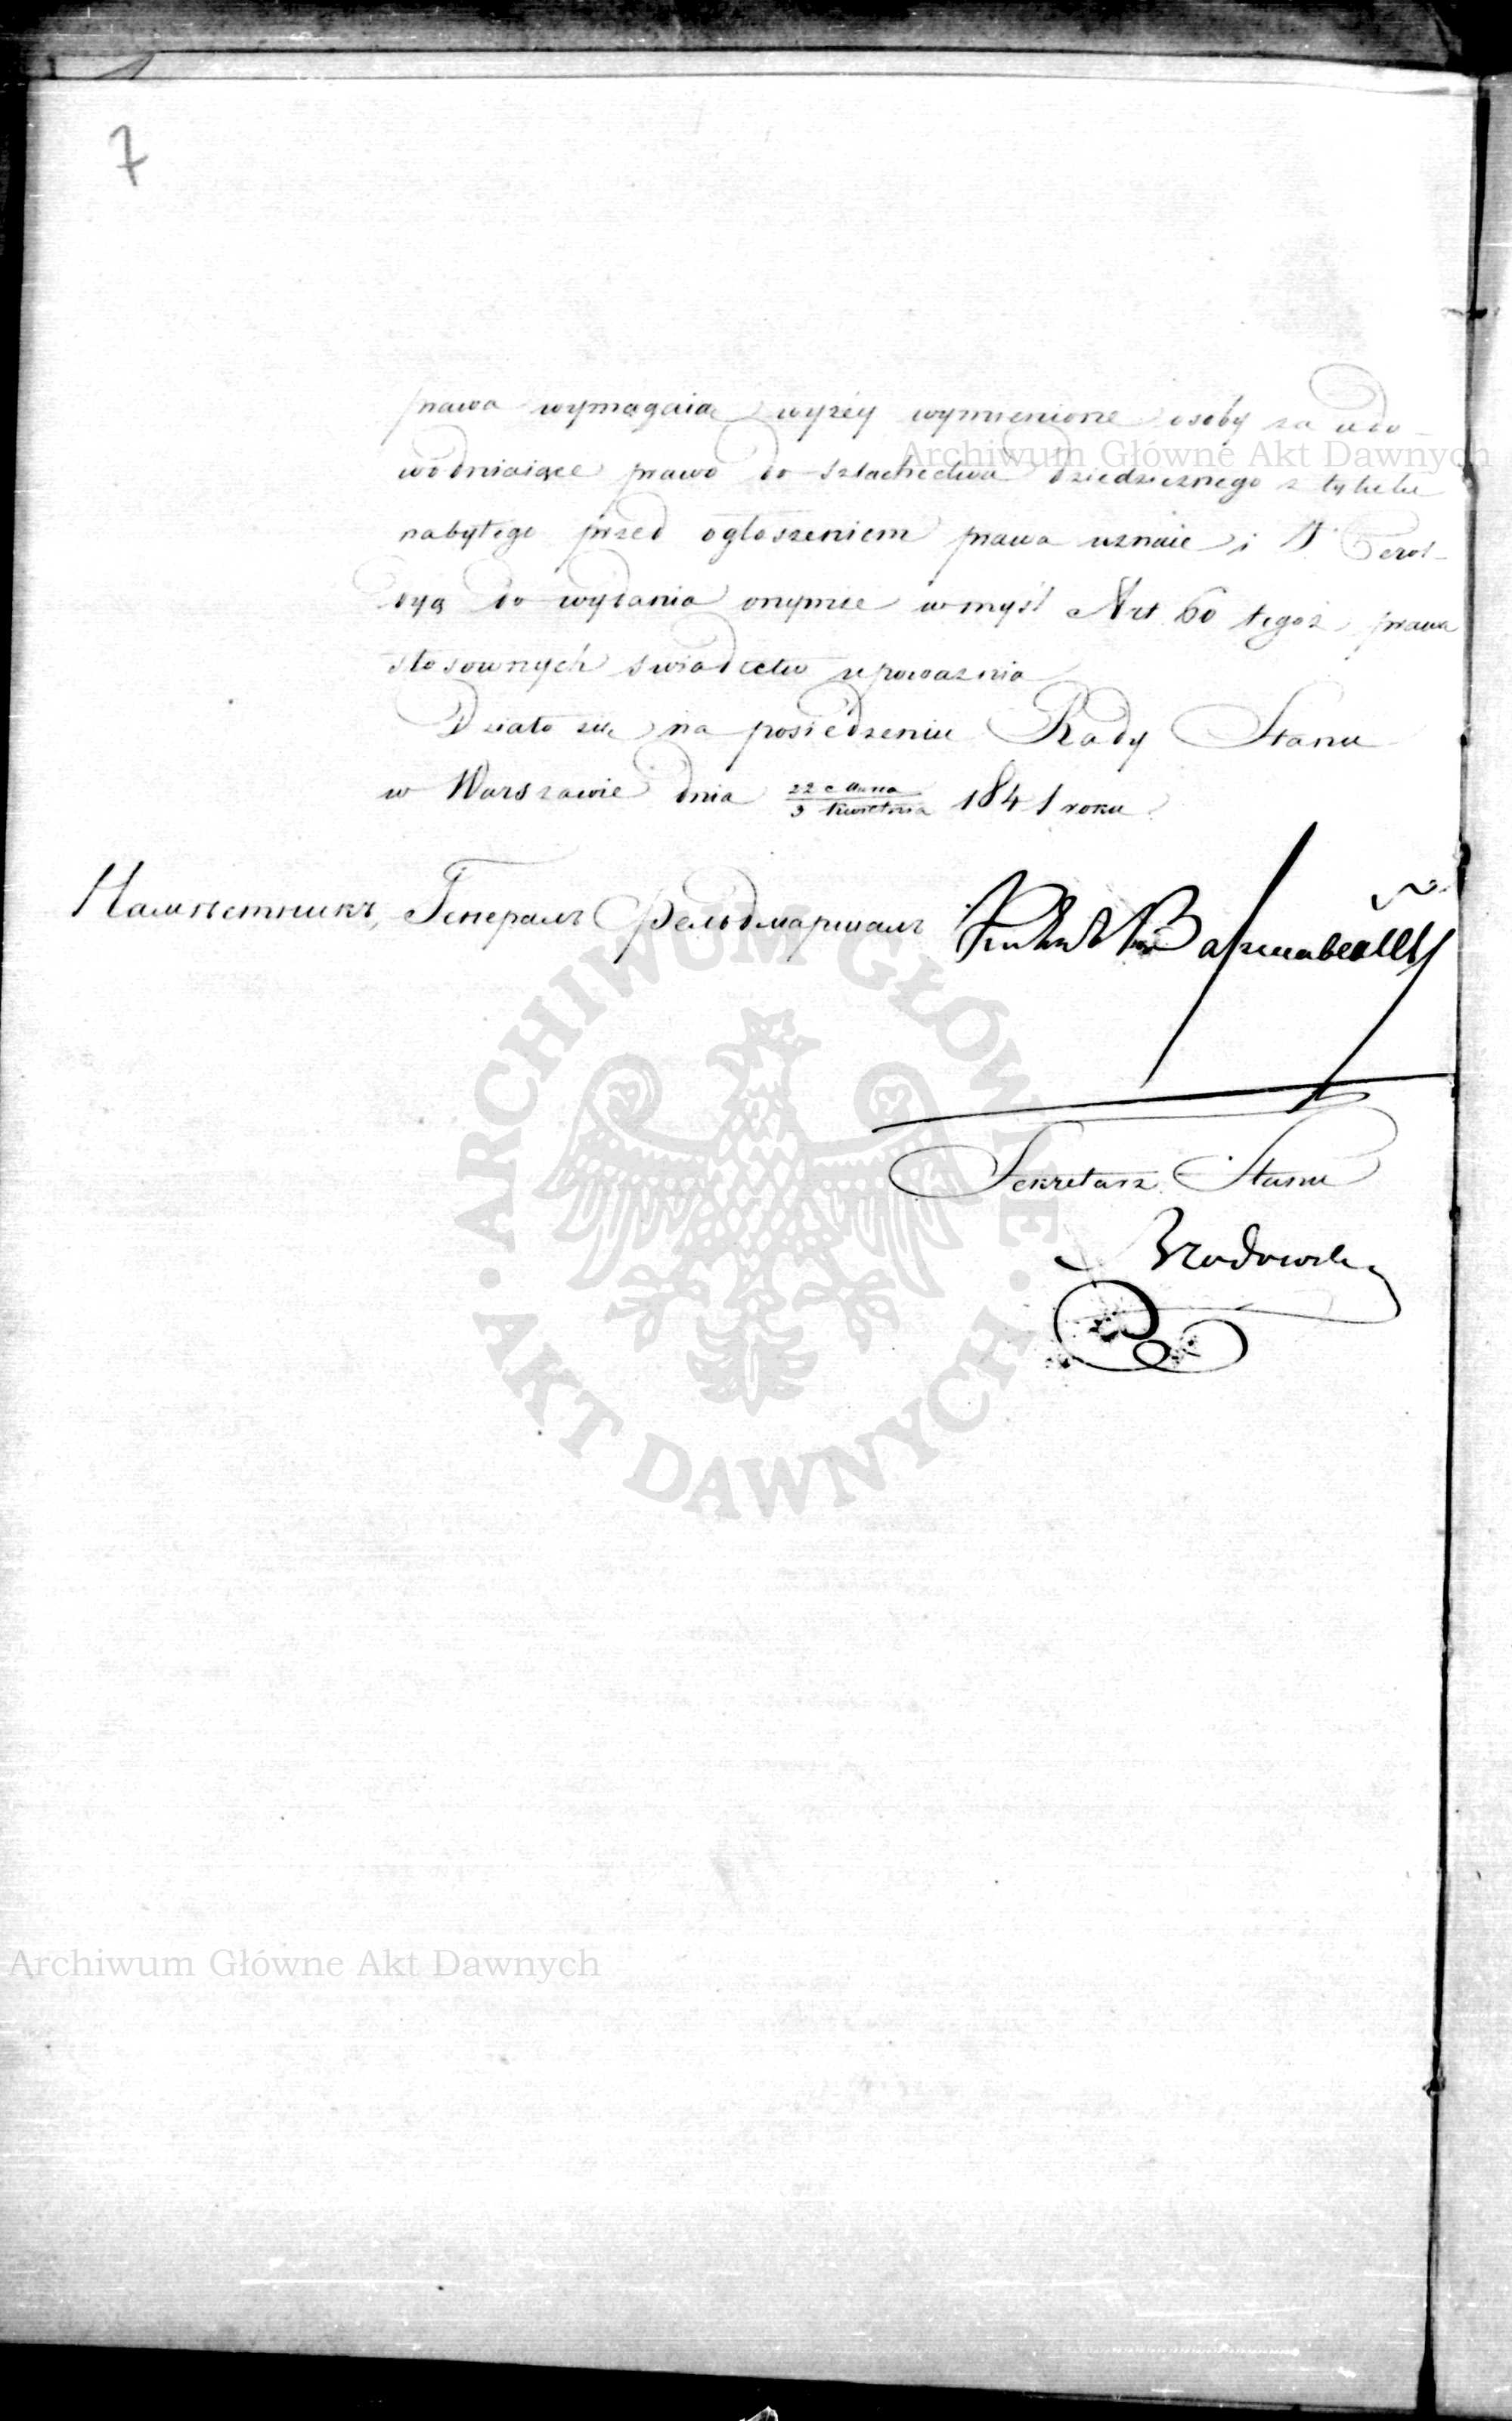 7
prawa wymagaią wyżéy wymienione osoby za udo-
wodniaiące prawo do szlachectwa dziedzicznego z tytułu
nabytego przed ogłoszeniem prawa uznaie i
dyą do wydania onymże w myśl Art 60 tegoż prawa
stosownych świadectw upoważnia
Działo się na posiedzeniu Rady Stanu
w Warszawie dnia 22 Marca / 3 Kwietnia 1841 roku
Намѣстникъ, Генералъ Фельдмаршалъ
Варшавскій
Sekretarz Stanu
Brodowski
Archiwum Główne Akt Dawnych
ARCHIWUM GŁÓWNE · AKT DAWNYCH ·
Archiwum Główne Akt Dawnych